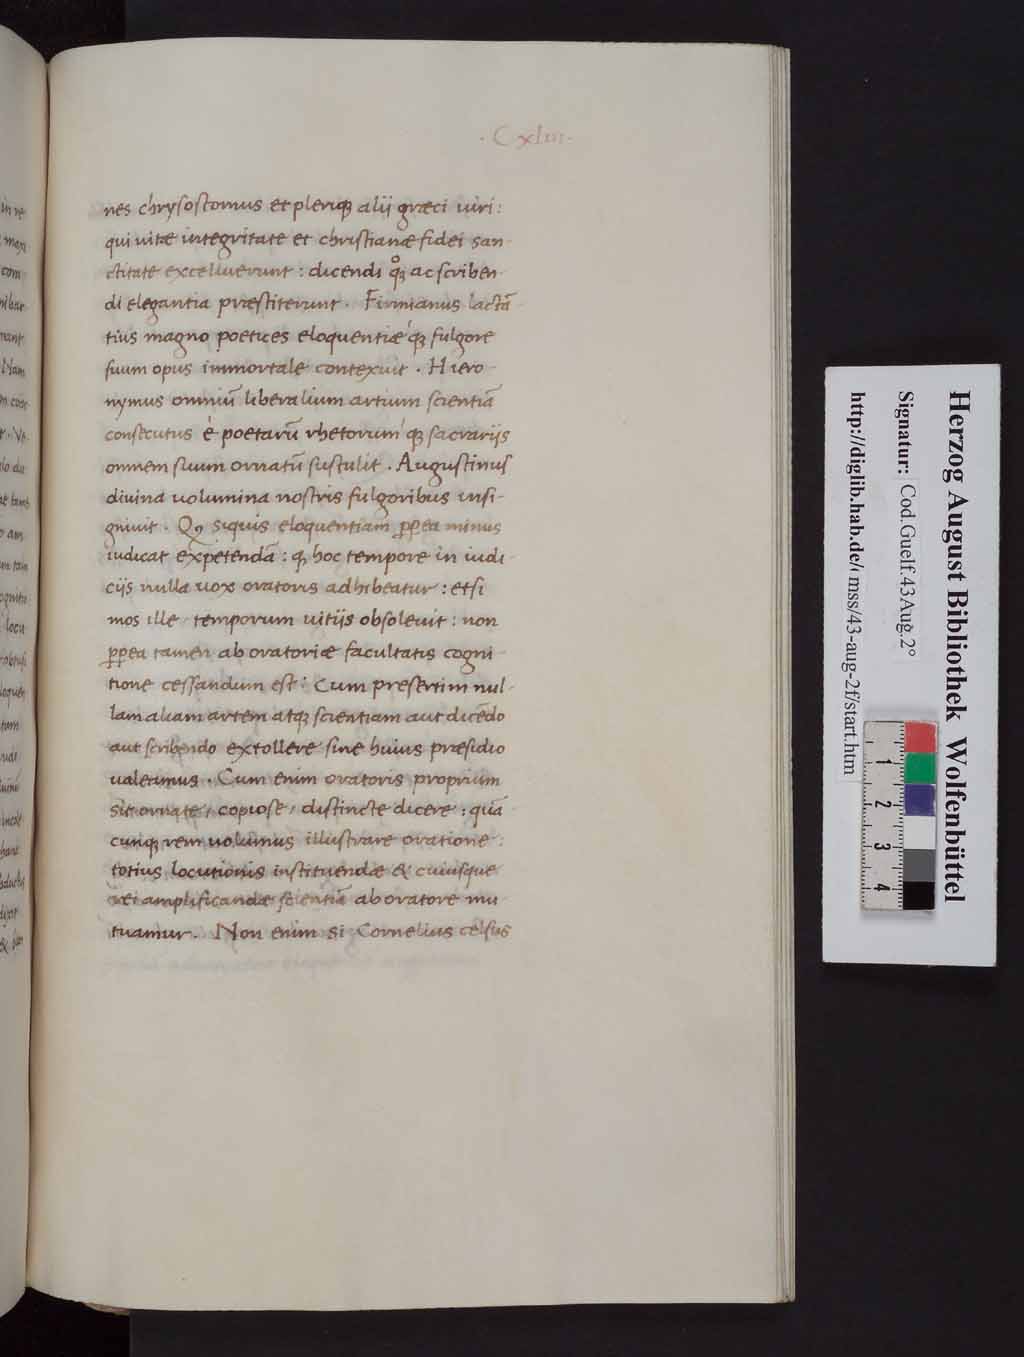 · Cxliii ·
nes chrysostomus et pleriqꝫ alij græci uiri :
qui uitæ integritate et christianæ fidei san-
ctitate excelluerunt : dicendi qͦꝫ ac scriben-
di elegantia præstiterunt . Firmianus lactā-
tius magno poetices eloquentiæ qꝫ fulgore
suum opus immortale contexuit . Hiero-
nymus omniū liberalium artium scientiā
consecutus è poetarū rhetorum qꝫ sacrarijs
omnem suum ornatū sustulit . Augustinus
diuina uolumina nostris fulgoribus insi-
gniuit . Qꝙ siquis eloquentiam ꝓꝑea minus
iudicat expetendā : qꝫ hoc tempore in iudi-
cijs nulla uox oratoris adhibeatur : etsi
mos ille temporum uitijs obsoleuit : non
ꝓꝑea tamen ab oratoriæ facultatis cogni-
tione cessandum est : Cum presertim nul-
lam aliam artem atqꝫ scientiam aut dicēdo
aut scribendo extollere sine huius præsidio
ualeamus . Cum enim oratoris proprium
sit ornate / copiose / distincte dicere : quā
cunqꝫ rem uolumus illustrare oratione :
totius locutionis instituendæ & cuiusque
rei amplificandæ scientiā ab oratore mu-
tuamur . Non enim si Cornelius celsus
Herzog August Bibliothek Wolfenbüttel
Signatur: Cod.Guelf.43 Aug.2°
http://diglib.hab.de/ mss/43-aug-2f/start.htm
1
2
3
4